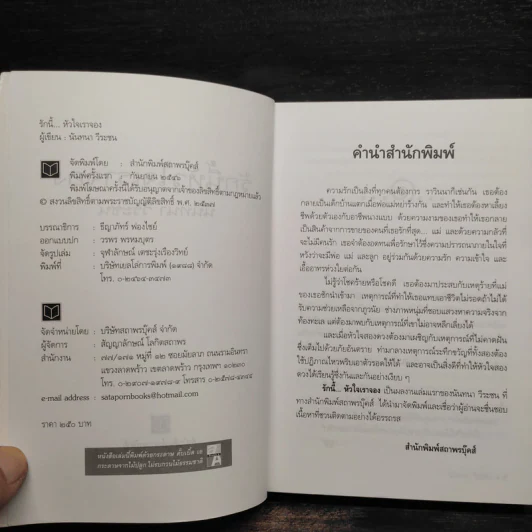 รักนี้... หัวใจเราจอง
ผู้เขียน : นันทนา วีระชน
จัดพิมพ์โดย : สำนักพิมพ์สถาพรบุ๊คส์
พิมพ์ครั้งแรก : กันยายน ๒๕๔๖
พิมพ์โฆษณาครั้งนี้ได้รับอนุญาตจากเจ้าของลิขสิทธิ์ตามกฎหมายแล้ว
© สงวนลิขสิทธิ์ตามพระราชบัญญัติลิขสิทธิ์ พ.ศ. ๒๕๓๗
บรรณาธิการ :
ออกแบบปก : วรพร พรหมบุตร
จัดรูปเล่ม : จุฬาลักษณ์ เดชะรุ่งเรืองวิไลย์
พิมพ์ที่ : บริษัทเยลโล่การพิมพ์ (๑๙๘๘) จำกัด
โทร.
จัดจำหน่ายโดย : บริษัทสถาพรบุ๊คส์ จำกัด
ผู้จัดการ : สัญญาลักษณ์ โลกิตสถาพร
สำนักงาน : หมู่ที่ ๑๒ ซอยมัยลาภ ถนนรามอินทรา
แขวงลาดพร้าว เขตลาดพร้าว กรุงเทพฯ ๑๐๒๓๐
โทร. โทรสาร
e-mail address : satapornbooks@hotmail.com
ราคา ๒๕๐ บาท
หนังสือเล่มนี้พิมพ์ด้วยกระดาษ
กระดาษจากไม้ปลูก ไม่รบกวนไม้ธรรมชาติ
คำนำสำนักพิมพ์
ความรักเป็นสิ่งที่ทุกคนต้องการ ราวินนาก็เช่นกัน เธอต้อง
กลายเป็นเด็กบ้านแตกเมื่อพ่อแม่หย่าร้างกัน และทำให้เธอต้องหาเลี้ยง
ชีพด้วยตัวเองกับอาชีพนางแบบ ด้วยความงามของเธอทำให้เธอกลาย
เป็นสินค้าจากการขายของคนที่เธอรักที่สุด... แม่ และด้วยความกลัวที่
จะไม่มีคนรัก เธอจำต้องอดทนเพื่อรักษาไว้ซึ่งความปรารถนาภายในใจที่
หวังว่าจะมีพ่อ แม่ และลูก อยู่ร่วมกันด้วยความรัก ความเข้าใจ และ
เอื้ออาทรห่วงใยต่อกัน
ไม่รู้ว่าโชคร้ายหรือโชคดี เธอต้องมาประสบกับเหตุร้ายที่แม่
ของเธอชักนำเข้ามา เหตุการณ์ที่ทำให้เธอแทบเอาชีวิตไม่รอดถ้าไม่ได้
รับความช่วยเหลือจากภูวนัย ช่างภาพหนุ่มที่ชอบแสวงหาความจริงจาก
ท้องทะเล แต่ต้องมาพบกับเหตุการณ์ที่เขาไม่อาจหลีกเลี่ยงได้
และเมื่อหัวใจสองดวงต้องมาผจญกับเหตุการณ์ที่ไม่คาดฝัน
ซึ่งเต็มไปด้วยภัยอันตราย ท่ามกลางเหตุการณ์ระทึกขวัญที่ทั้งสองต้อง
ใช้ปฏิภาณไหวพริบเอาตัวรอดให้ได้ และอาจเป็นสิ่งดีที่ทำให้หัวใจสอง
ดวงได้เรียนรู้ซึ่งกันและกันอย่างเงียบ ๆ
รักนี้... หัวใจเราจอง เป็นผลงานเล่มแรกของนันทนา วีระชน ที่
ทางสำนักพิมพ์สถาพรบุ๊คส์ ได้นำมาจัดพิมพ์และเชื่อว่าผู้อ่านจะชื่นชอบ
เนื้อหาที่ชวนติดตามอย่างอรรถรส
สำนักพิมพ์สถาพรบุ๊คส์